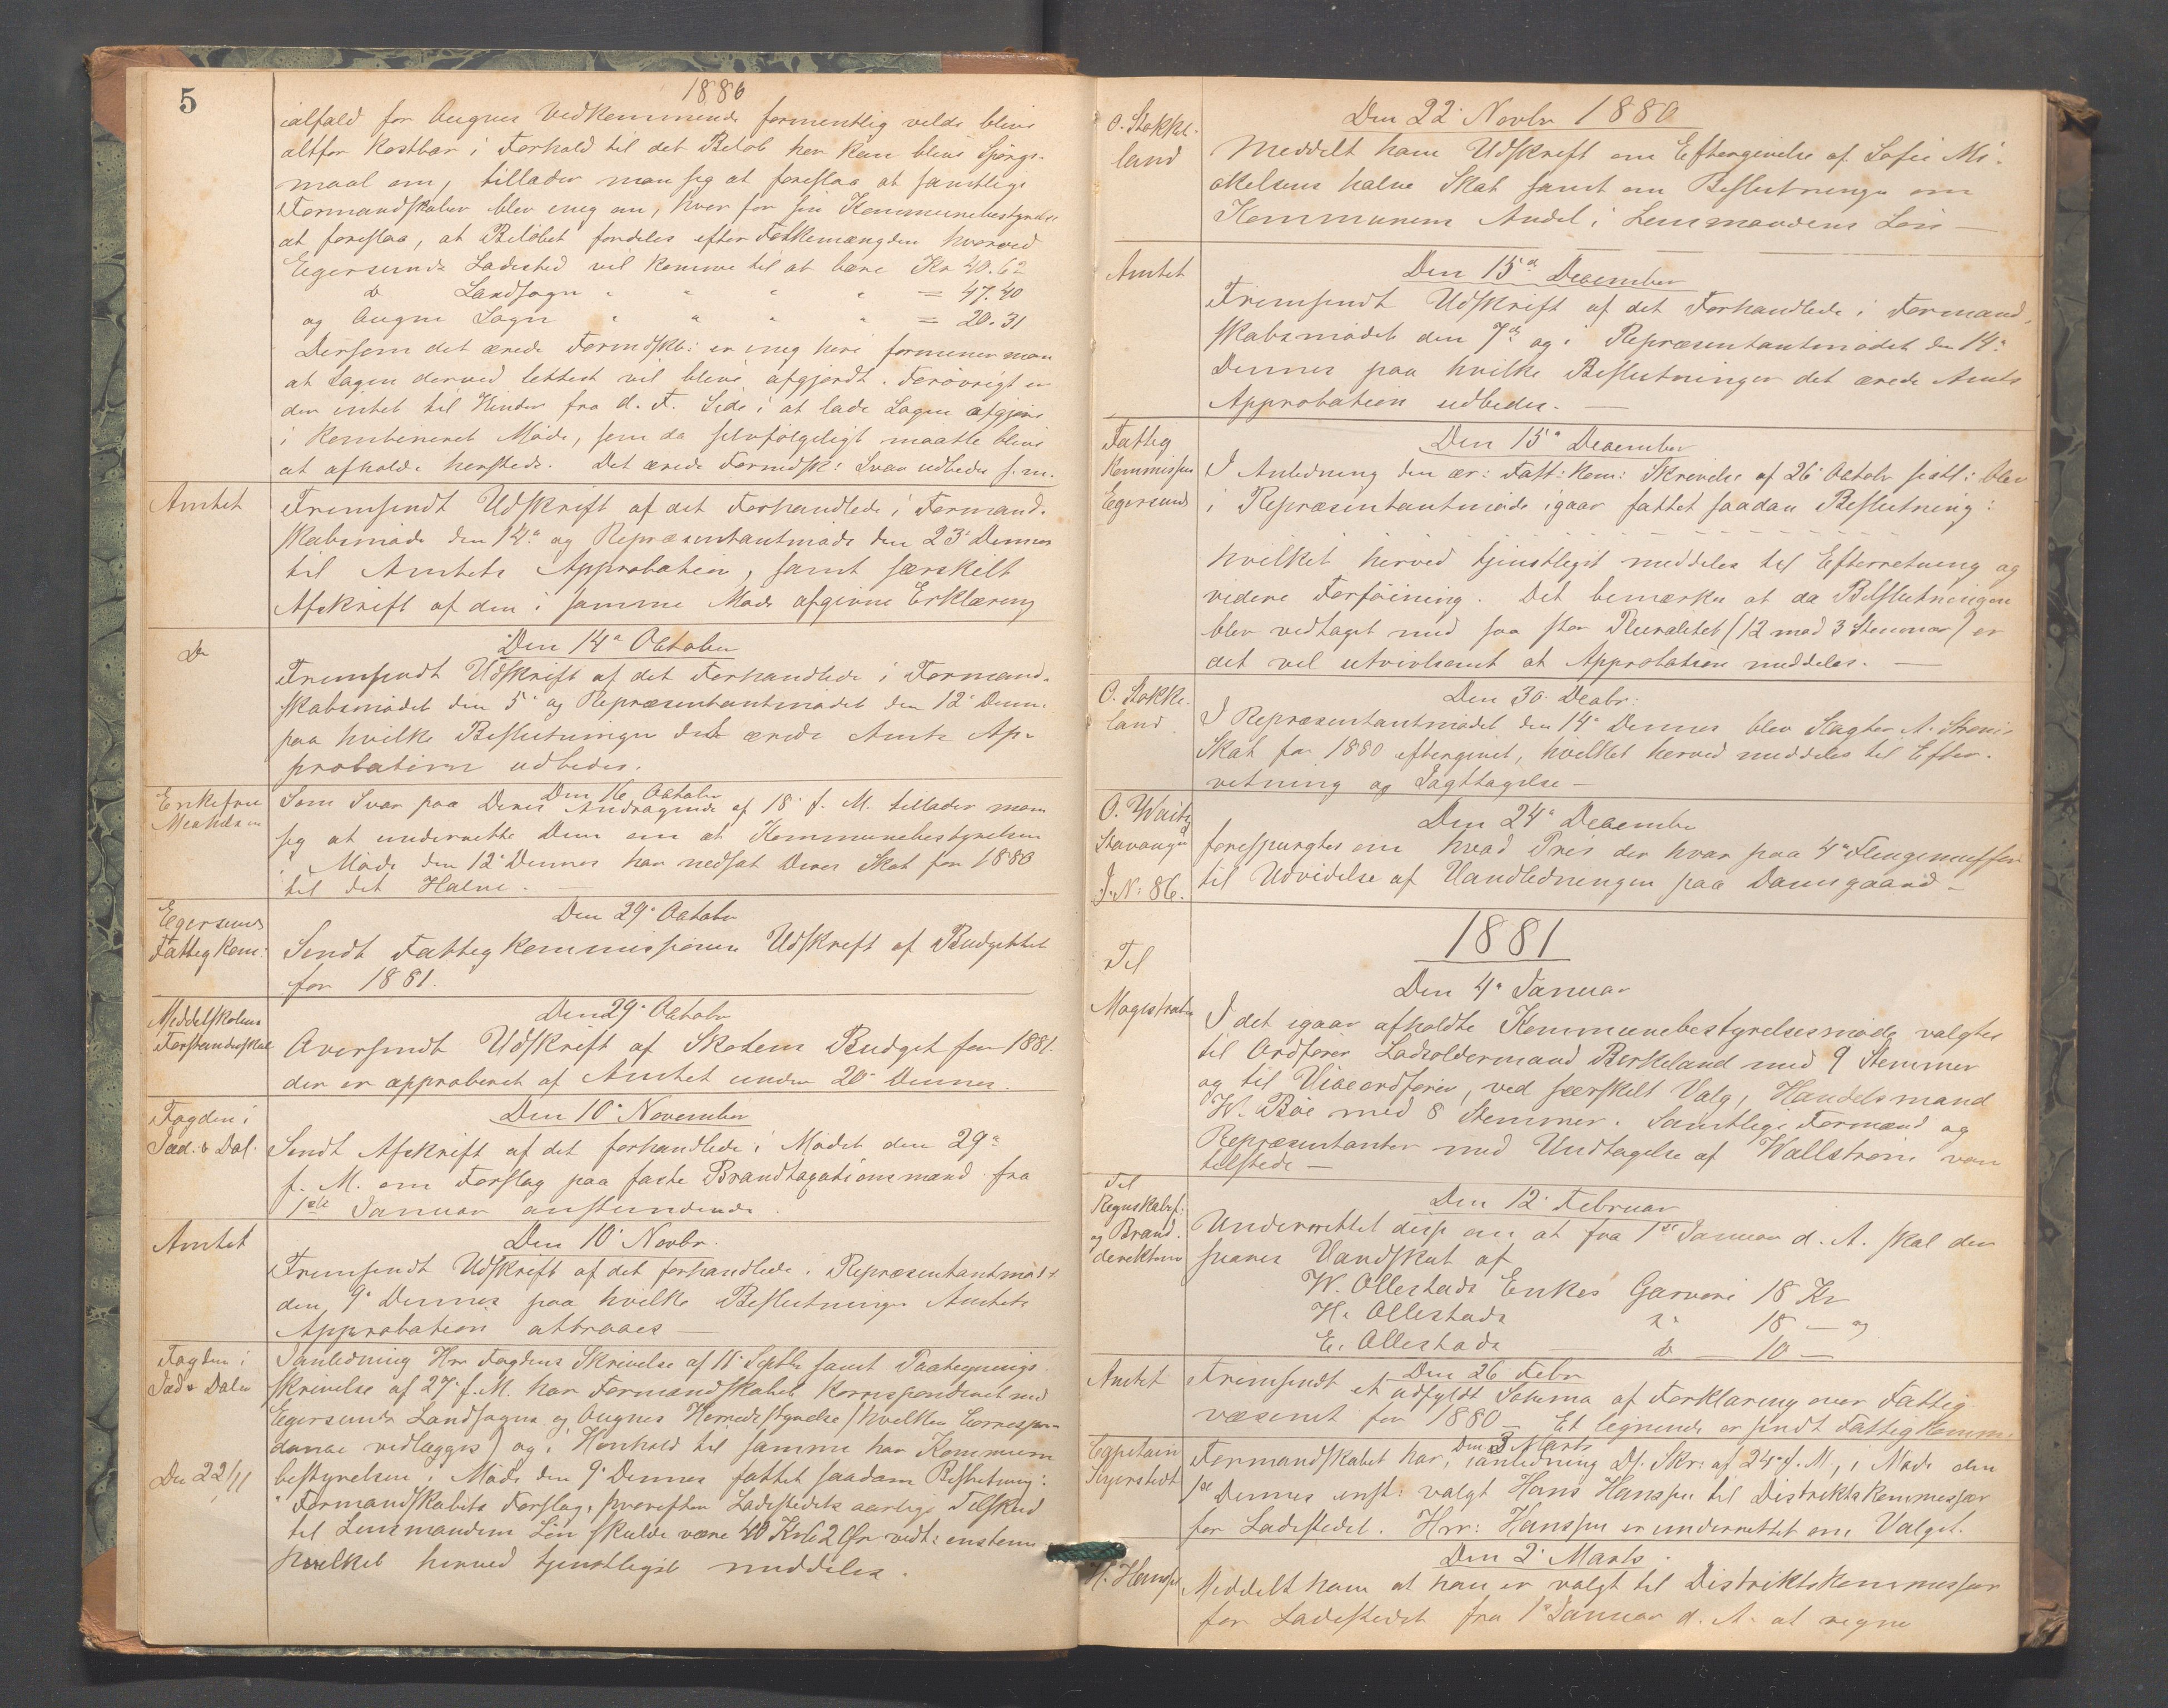 5
1880
ialfald for Augnes Vedkommende formentlig vilde blive
altfor kostbar i Forhold til det Beløb her kan blive Spörgs-
maal om, tillader man sig at foreslaa at samtlige
Formandskaber blev enig om, hver for sin Kommunebestyrelse
at foreslaa, at Beløbet fordeles efter Folkemængden hvorved
Egersunds Ladested vil komme til at bære Kr 40.62
do Landsogn " " " " = 47.40
og Augne Sogn " " " " = 20.31
Dersom det ærede Formdskb: er enig heri formener man
at Sagen derved lettest vil blive afgjordt. Forøvrigt er
der intet til Hinder fra d. F. Side i at lade Sagen afgjøre
i kombineret Møde, som da selvfølgeligt maatte blive
at afholde hersteds. Det ærede Formdsk: Svar udbedes s.m.
Amtet
Fremsendt Udskrift af det Forhandlede i Formand-
skabsmøde den 14de og Repræsentantmøde den 23' Dennes
til Amtets Approbation, samt særskilt
Afskrift af den i samme Møde afgivne Erklæring
Do
Den 14de October
Fremsendt Udskrift af det Forhandlede i Formand-
skabsmødet den 5' og Repræsentantmødet den 12' Denn.
paa hvilke Beslutninger det ærede Amts Ap-
probation udbedes.
Enkefru
Den 16 Octobr
Som Svar paa Deres Andragende af 18' f. M. tillader man
sig at underrette Dem om at Kommunebestyrelsen
i Møde den 12' Dennes har nedsat Deres Skat for 1880
til det Halve. —
Egersunds
Fattigkom:
Den 29' Octobr
Sendt Fattigkommissionen Udskrift af Budgettet
for 1881.
Middelskolens
Forstanderskab
Den 29' Octobr
Oversendt Udskrift af Skolens Budget for 1881.
der er approberet af Amtet under 20' Dennes.
Fogden i
Jæd. & Dal.
Den 10' November
Sendt Afskrift af det forhandlede i Mødet den 29de
f. M. om Forslag paa faste Brandtaxationsmænd fra
1ste Januar anstundende.
Amtet
Den 10' Novbr.
Fremsendt Udskrift af det forhandlede i Repræsentantmødet
den 9' Dennes paa hvilke Beslutninger Amtets
Approbation attraaes —
Fogden i
Jæd & Dalen
Den 22/11
I anledning Hr Fogdens Skrivelse af 11' Septbr samt Paategnings
skrivelse af 27' f. M. har Formandskabet korresponderet med
Egersunds Landsogns og Augnes Herredsstyrelse (hvilken Correspon-
dance vedlægges) og i Henhold til samme har Kommune
bestyrelsen i Møde den 9' Dennes fattet saadan Beslutning:
"Formandskabets Forslag, hvorefter Ladestedets aarlige Tilskud
til Lensmandens Løn skulde være 40 Kr 62 Øre vedt: enstem:
hvilket herved tjenstligst meddeles.
O. Stokke-
land
Den 22' Novbr 1880
Meddelt ham Udskrift om Eftergivelse af Sofie Mi-
akelsens halve Skat samt om Beslutningen om
Kommunens Andel i Lensmandens Løn —
Amtet
Den 15de December
Fremsendt Udskrift af det Forhandlede i Formand-
skabsmødet den 7de og i Repræsentantmødet den 14de
Dennes paa hvilke Beslutninger det ærede Amts
Approbation udbedes. —
Fattig
Kommissen
Egersund
Den 15' December
I Anledning den ær: Fatt: Kom: Skrivelse af 26' Octobr sidstl: blev
i Repræsentantmøde igaar fattet saadan Beslutning:
hvilket herved tjenstligst meddeles til Efterretning og
videre Forføining. Det bemærkes at da Beslutningen
blev vedtaget med saa stor Pluralitet (12 mod 3 Stemmer) er
det vel utvivlsomt at Approbation meddeles. —
O. Stokke-
land
Den 30' Decbr:
I Repræsentantmødet den 14' Dennes blev Slagter A.
Skat for 1880 eftergivet, hvilket herved meddeles til Efter-
retning og Iagttagelse —
O.
Stavanger
J. N: 86.
Den 24' December
forespurgtes om hvad Pris der hvar paa 4"
til Udvidelse af Vandledningen paa Damsgaard —
1881
Til
Magistraten
Den 4' Januar
I det igaar afholdte Kommunebestyrelsesmøde valgtes
til Ordfører Lodsoldermand Berkeland med 9 Stemmer
og til Viceordfører, ved særskilt Valg, Handelsmand
W. Bøe med 8 Stemmer. Samtlige Formænd og
Repræsentanter med Undtagelse af Wallstrøm var
tilstede —
Til
Regnskabsf.
og Brand-
direktøren
Den 12' Februar
Underrettet disse om at fra 1ste Januar d. A. skal der
svares Vandskat af
W. Ollestads Enkes Garveri 18 Kr
H. Ollestads " 18 — og
E. Ollestads — do — 10 —
Amtet
Den 26 Febr
Fremsendt et udfyldt Schema af Forklaring over Fattig
væsenet for 1880 — Et lignende er sendt Fattigkomm:
Capitain
Den 3 Marts
Formandskabet har, i anledning Ds. Skr: af 24' f. M., i Møde den
1ste Dennes enst: valgt Hans Hanssen til Distriktskommissær
for Ladestedet. Hrr: Hanssen er underrettet om Valget.
H. Hanssen
Den 2' Marts.
Meddelt ham at han er valgt til Distriktskommissær
for Ladestedet fra 1' Januar d. A. at regne